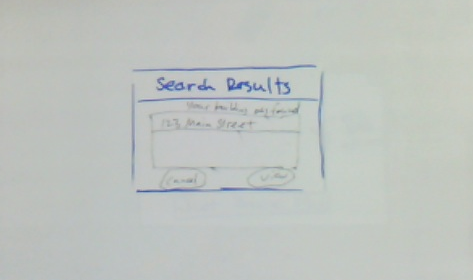 Search Results
Your building was found
123 Main Street
Cancel
View